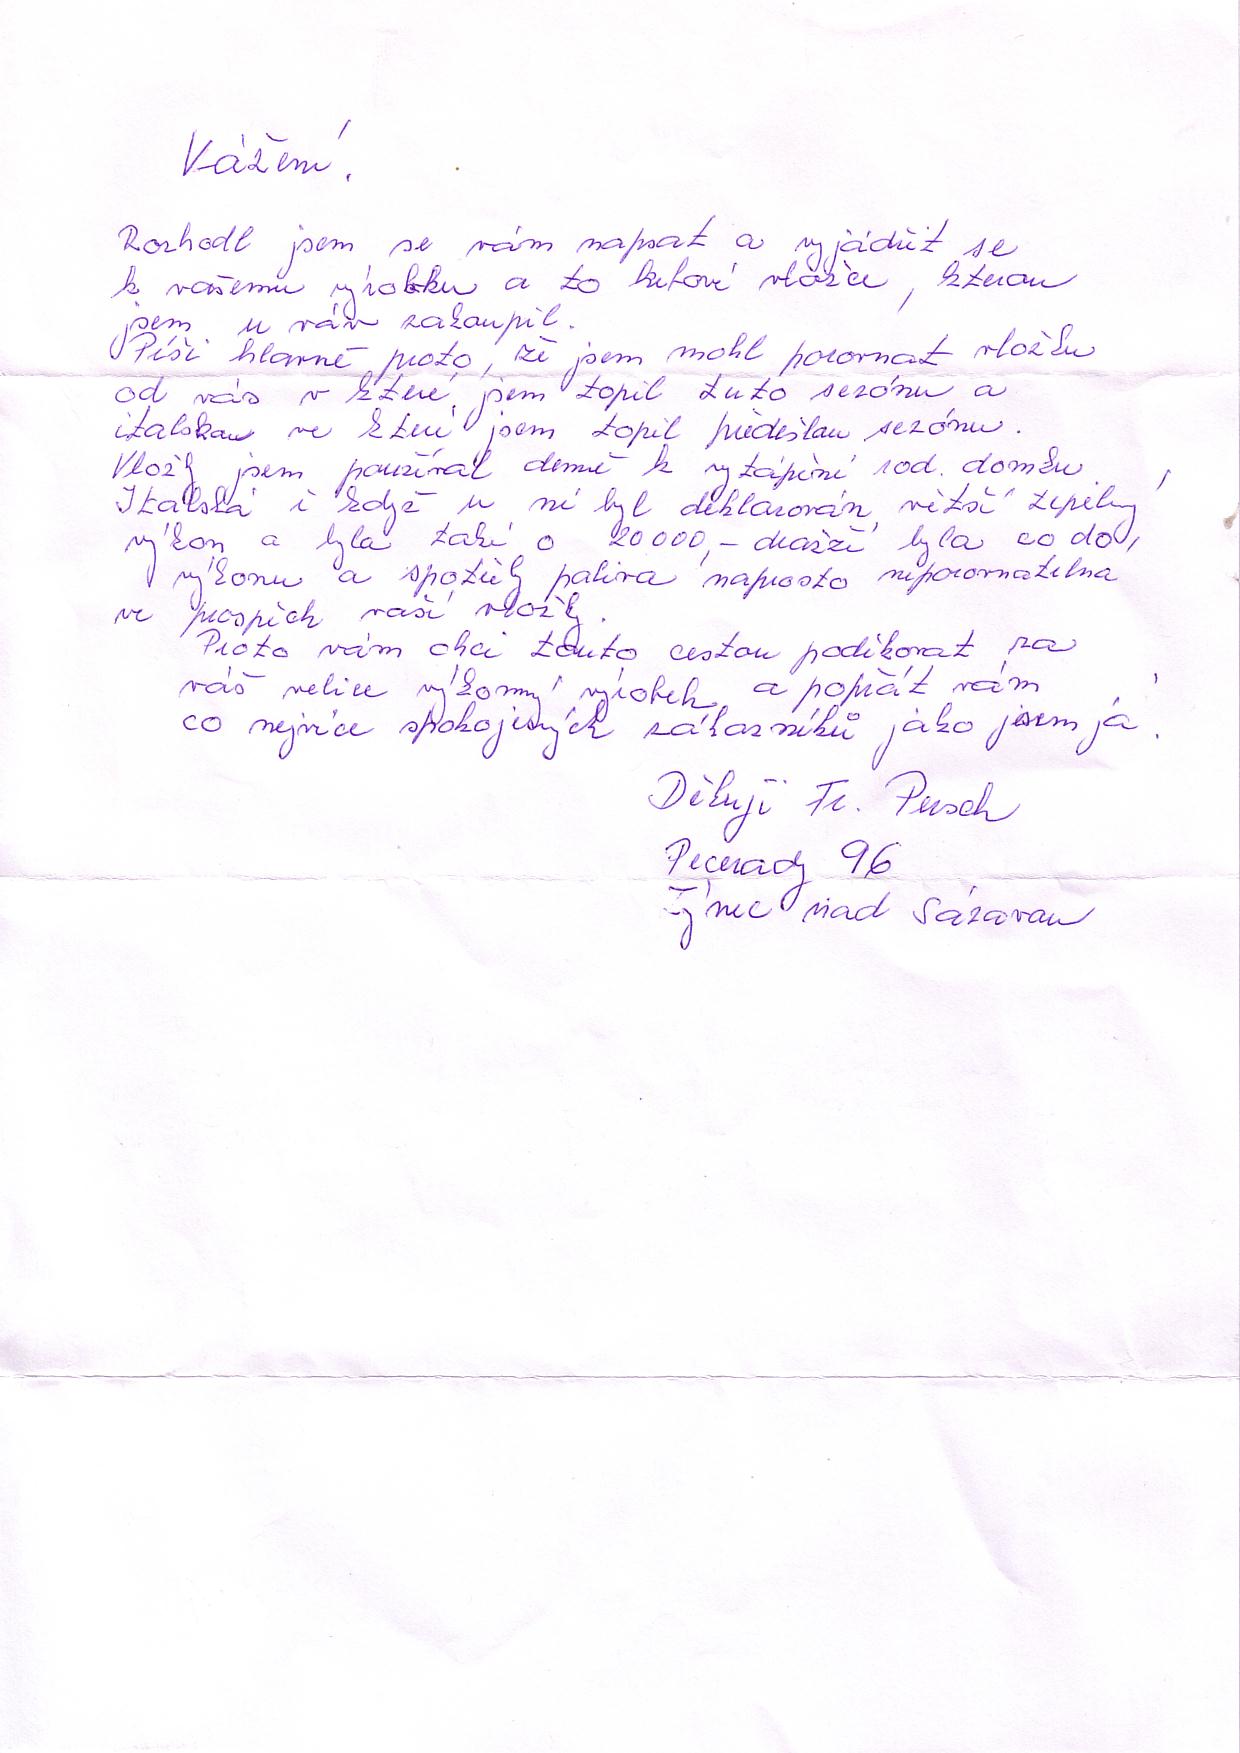 Vážení.
Rozhodl jsem se vám napsat a vyjádřit se
k vašemu výrobku a to krbové vložce, kterou
jsem u vás zakoupil.
Píši hlavně proto, že jsem mohl porovnat vložku
od vás v které jsem topil tuto sezónu a
italskou ve které jsem topil předešlou sezónu.
Vložky jsem používal denně k vytápění rod. domku
Italská i když u ní byl deklarován větší tepelný
výkon a byla také o 20000,- dražší byla co do
výkonu a spotřeby paliva naprosto neporovnatelna
ve prospěch vaší vložky.
Proto vám chci touto cestou poděkovat za
váš velice výkonný výrobek a popřát vám
co nejvíce spokojených zákazníků jako jsem já.
Děkuji Fr. Pusch
Pecerady 96
Týnec nad Sázavou